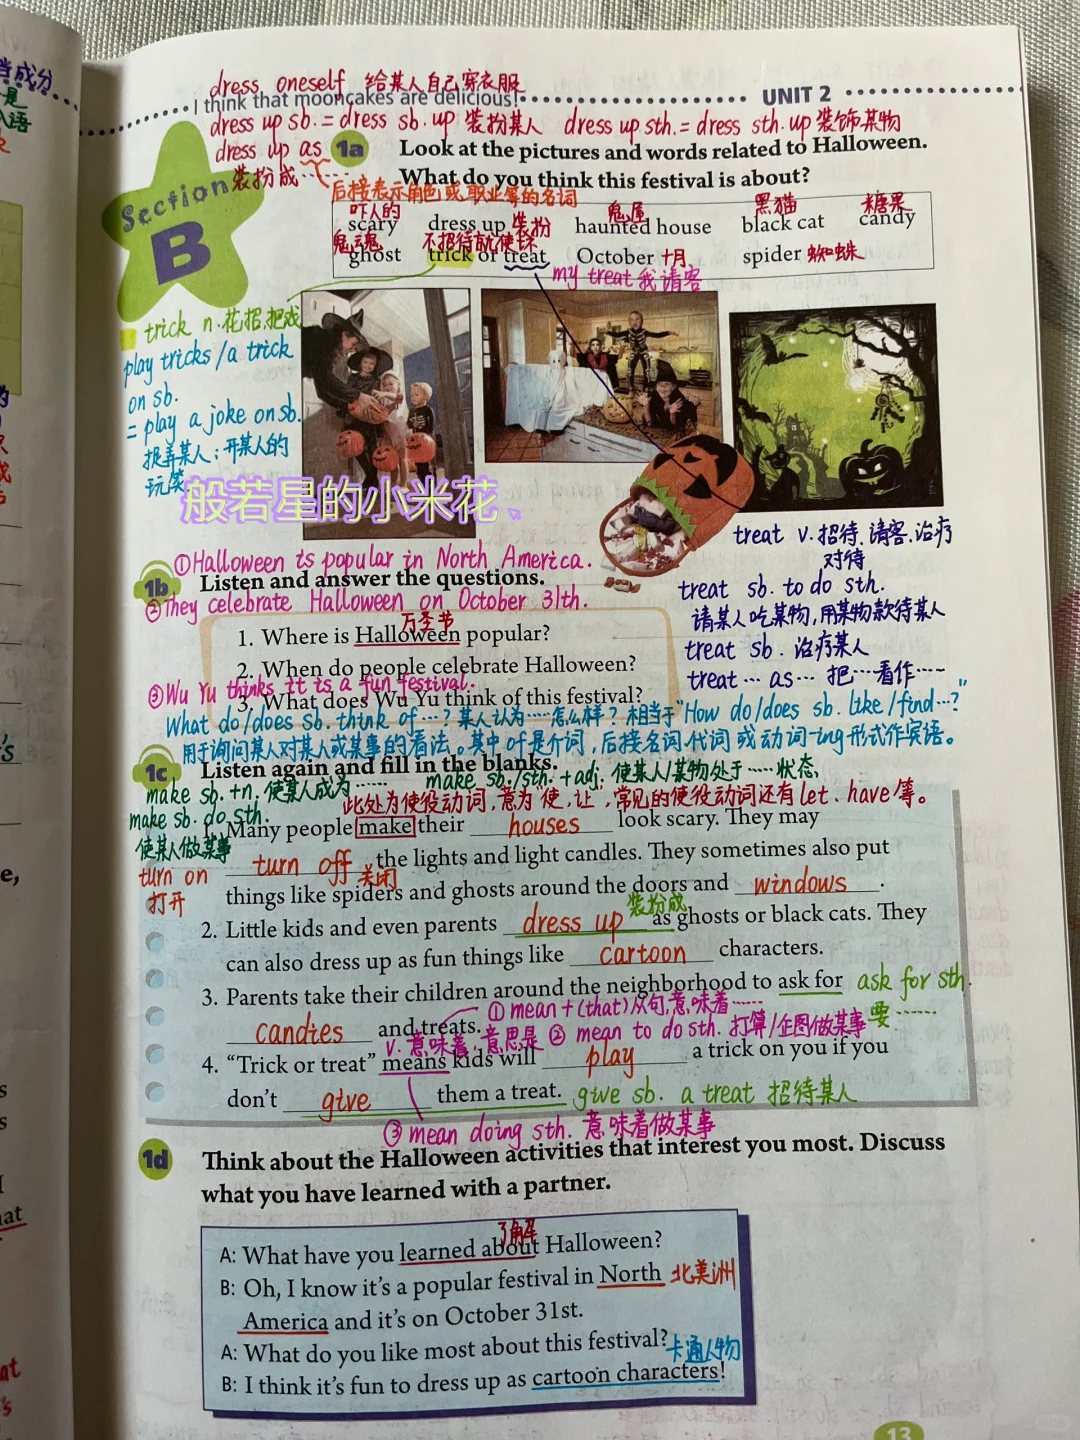 dress oneself 给某人自己穿衣服
I think that mooncakes are delicious! UNIT 2
dress up sb. = dress sb. up 装扮某人 dress up sth. = dress sth. up 装饰某物
dress up as
装扮成……
后接表示角色或职业等的名词
Section
B
1a Look at the pictures and words related to Halloween.
What do you think this festival is about?
吓人的 鬼屋 黑猫 糖果
scary dress up 装扮 haunted house black cat candy
鬼魂 不招待就使坏
ghost trick or treat October 十月 spider 蜘蛛
my treat 我请客
trick n.花招,把戏
play tricks/a trick
on sb.
= play a joke on sb.
捉弄某人;开某人的
玩笑
般若星的小米花
treat v.招待.请客.治疗
对待
treat sb. to do sth.
请某人吃某物,用某物款待某人
treat sb. 治疗某人
treat … as … 把…看作……
①Halloween is popular in North America.
1b Listen and answer the questions.
②They celebrate Halloween on October 31th.
万圣节
1. Where is Halloween popular?
2. When do people celebrate Halloween?
③Wu Yu thinks it is a fun festival.
3. What does Wu Yu think of this festival?
What do/does sb. think of …? 某人认为……怎么样? 相当于"How do/does sb. like/find…?"
用于询问某人对某人或某事的看法。其中of是介词,后接名词.代词或动词-ing形式作宾语。
1c Listen again and fill in the blanks.
make sb. +n. 使某人成为……
make sb./sth. +adj. 使某人/某物处于……状态,
此处为使役动词,意为"使,让",常见的使役动词还有let、have等。
make sb. do sth.
使某人做某事
1. Many people make their houses look scary. They may
turn on
打开
turn off the lights and light candles. They sometimes also put
关闭
things like spiders and ghosts around the doors and windows.
装扮成
2. Little kids and even parents dress up as ghosts or black cats. They
can also dress up as fun things like cartoon characters.
3. Parents take their children around the neighborhood to ask for ask for sth.
要……
① mean + (that)从句,意味着……
candies and treats.
v. 意味着,意思是 ② mean to do sth. 打算/企图做某事
4. "Trick or treat" means kids will play a trick on you if you
don't give them a treat. give sb. a treat 招待某人
③ mean doing sth. 意味着做某事
1d Think about the Halloween activities that interest you most. Discuss
what you have learned with a partner.
了解
A: What have you learned about Halloween?
B: Oh, I know it's a popular festival in North 北美洲
America and it's on October 31st.
A: What do you like most about this festival?
卡通人物
B: I think it's fun to dress up as cartoon characters!
13